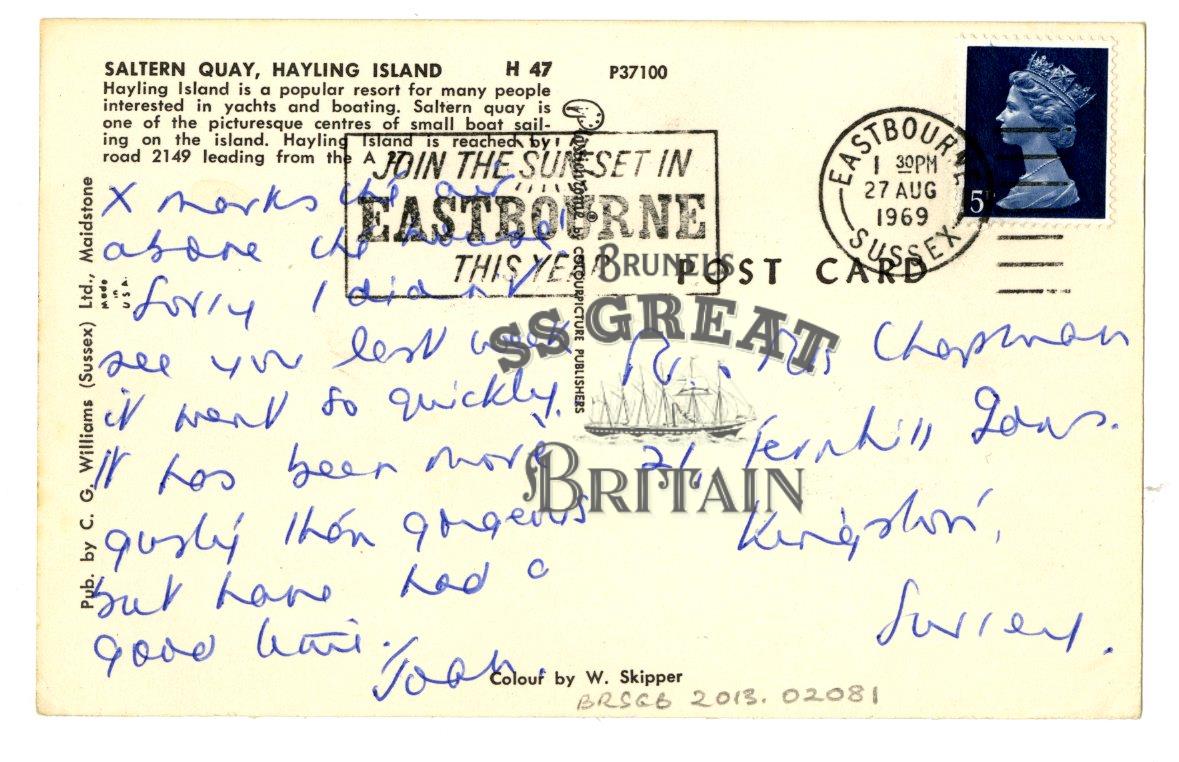 SALTERN QUAY, HAYLING ISLAND H 47 P37100
Hayling Island is a popular resort for many people
interested in yachts and boating. Saltern quay is
one of the picturesque centres of small boat sail-
ing on the island. Hayling Island is reached by
road 2149 leading from the A
JOIN THE SUN SET IN
EASTBOURNE
THIS YEAR
EASTBOURNE
1 30PM
27 AUG
1969
SUSSEX
5P
POST CARD
Plastichrome ® by COLOURPICTURE PUBLISHERS
Pub. by C. G. Williams (Sussex) Ltd., Maidstone
Made in U.S.A.
X marks the
above the house
Sorry I didn't
see you last week
it went so quickly.
It has been more
gusty than gorgeous
but have had a
good time.
Joan.
Mrs Chapman
21, Fernhill Gdns.
Kingston,
Surrey.
BRUNEL'S
SS GREAT
BRITAIN
Colour by W. Skipper
BRSGB 2013. 02081